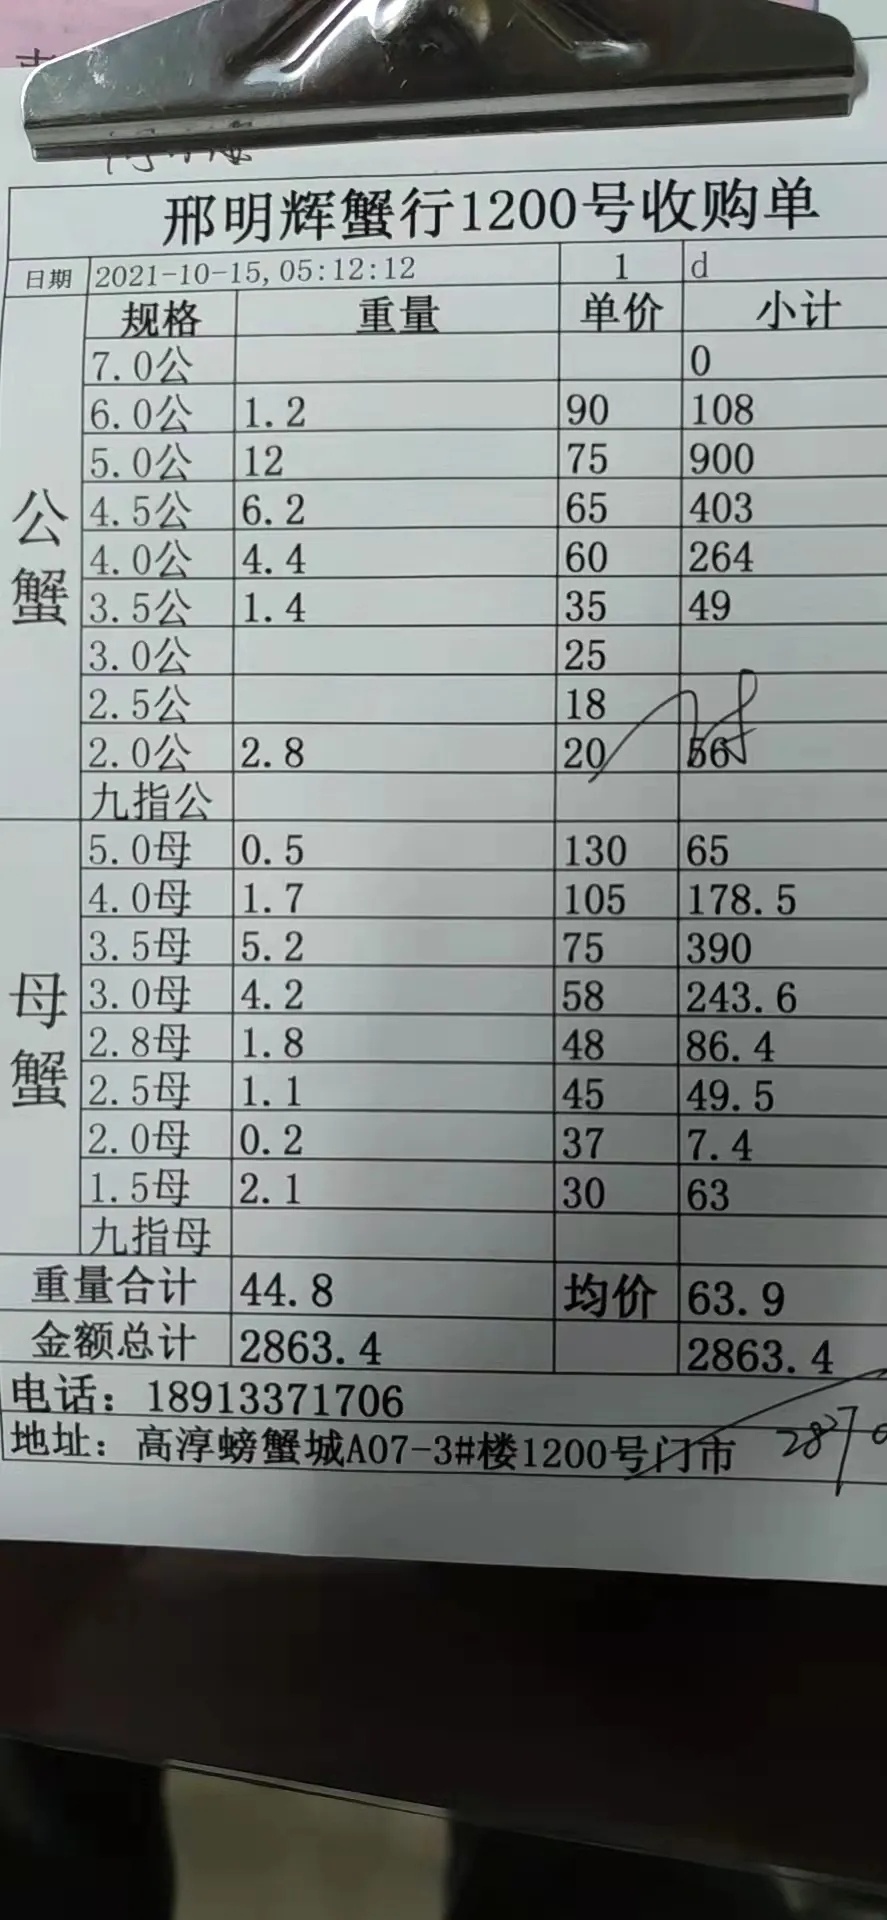 邢明辉蟹行1200号收购单
日期 2021-10-15,05:12:12 1 d
公蟹 规格 重量 单价 小计
7.0公 0
6.0公 1.2 90 108
5.0公 12 75 900
4.5公 6.2 65 403
4.0公 4.4 60 264
3.5公 1.4 35 49
3.0公 25
2.5公 18
2.0公 2.8 20 56
九指公
母蟹 5.0母 0.5 130 65
4.0母 1.7 105 178.5
3.5母 5.2 75 390
3.0母 4.2 58 243.6
2.8母 1.8 48 86.4
2.5母 1.1 45 49.5
2.0母 0.2 37 7.4
1.5母 2.1 30 63
九指母
重量合计 44.8 均价 63.9
金额总计 2863.4 2863.4
电话：18913371706
地址：高淳螃蟹城A07-3#楼1200号门市